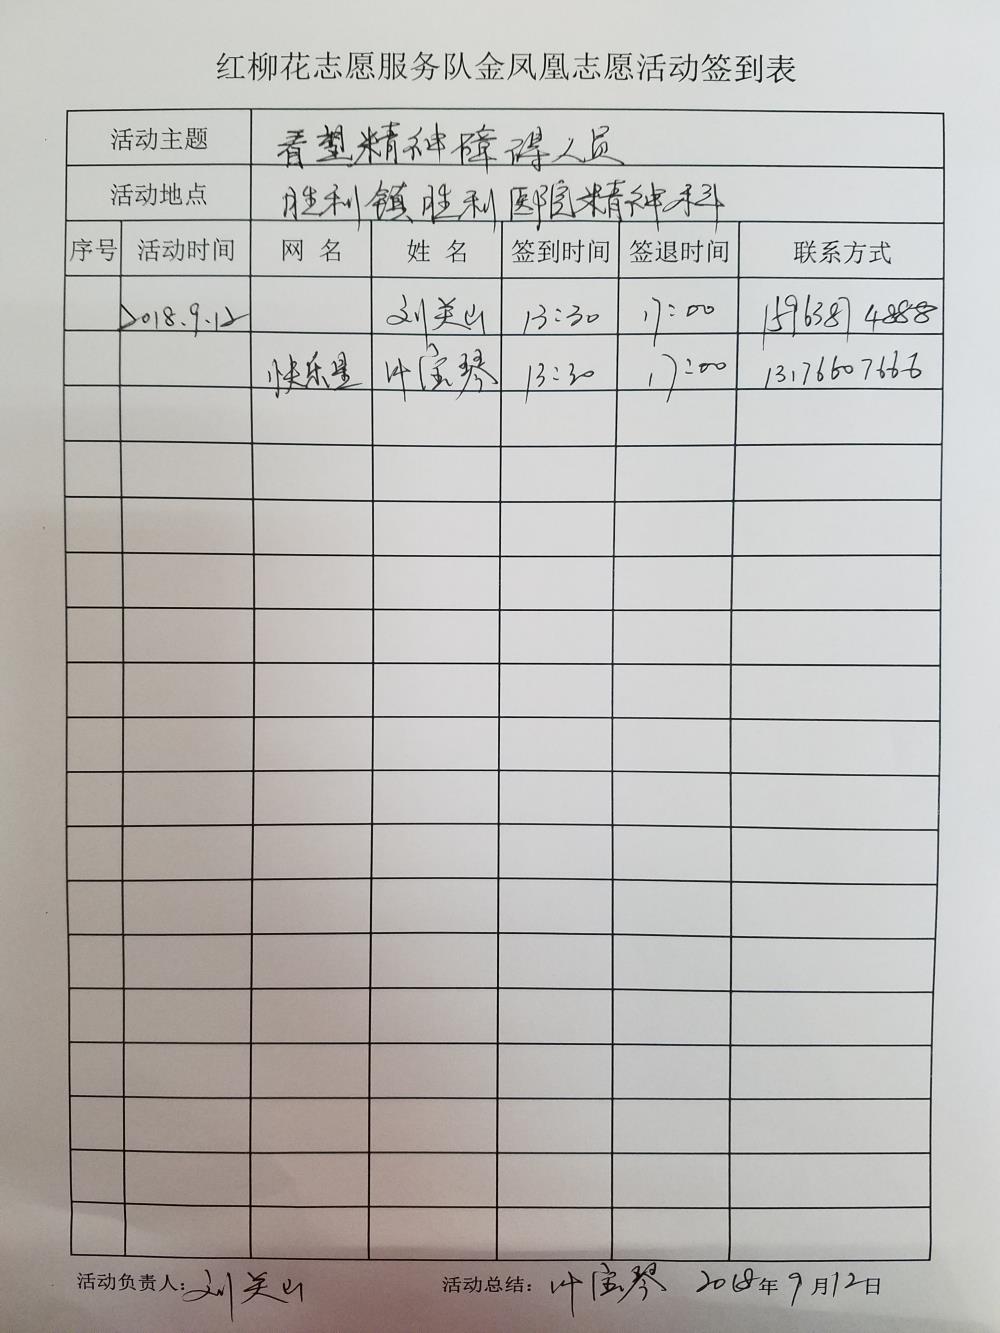 红柳花志愿服务队金凤凰志愿活动签到表
活动主题 看望精神障碍人员
活动地点 胜利镇胜利医院精神科
序号 活动时间 网名 姓名 签到时间 签退时间 联系方式
2018.9.12 刘关山 13:30 17:00 15963874888
快乐星 叶宝琴 13:30 17:00 13176607666
活动负责人:刘关山 活动总结:叶宝琴 2018年9月12日